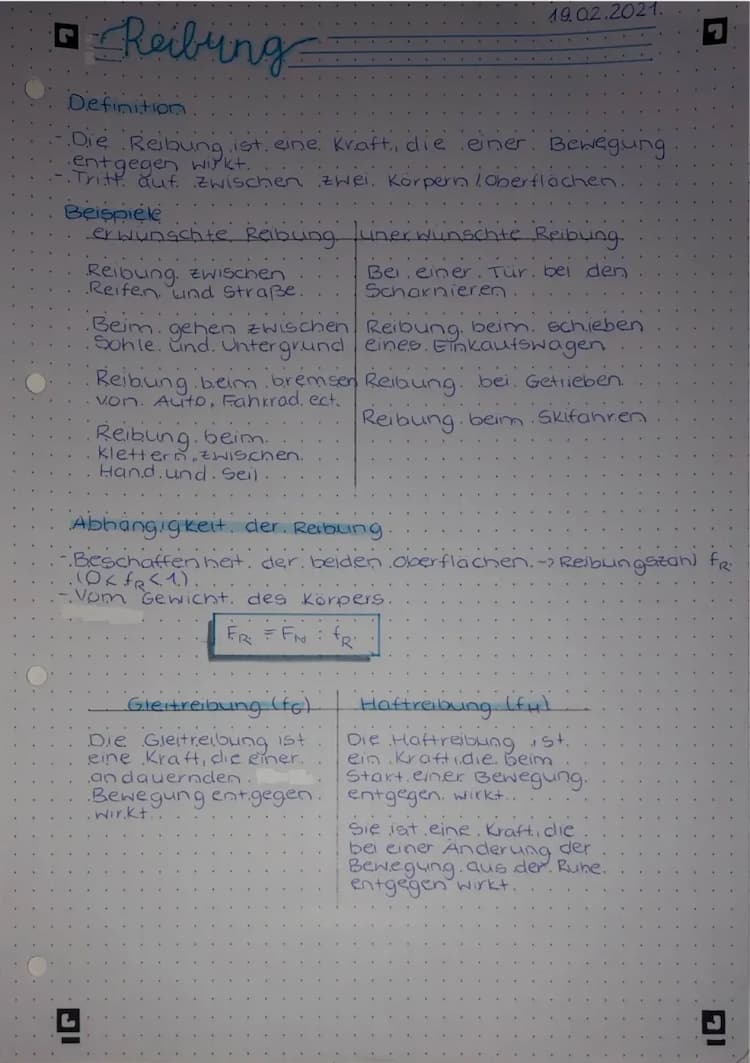 19.02.2021.
Reibung
Definition
- Die Reibung ist eine Kraft, die einer Bewegung
entgegen wirkt.
- Tritt auf zwischen zwei Körpern / Oberflächen.
Beispiele
erwünschte Reibung
Reibung zwischen
Reifen und Straße.
Beim gehen zwischen
Sohle und Untergrund
Reibung beim bremsen
von Auto, Fahrrad ect.
Reibung beim
klettern zwischen
Hand und Seil
unerwünschte Reibung
Bei einer Tür bei den
Scharnieren
Reibung beim schieben
eines Einkaufswagen
Reibung bei Getrieben
Reibung beim Skifahren
Abhängigkeit der Reibung
- Beschaffenheit der beiden Oberflächen -> Reibungszahl fR
(0 < fR < 1)
- Vom Gewicht des Körpers.
FR = FN : fR
Gleitreibung (fG)
Die Gleitreibung ist
eine Kraft, die einer
andauernden
Bewegung entgegen
wirkt.
Haftreibung (fH)
Die Haftreibung ist
ein Kraft, die beim
Start einer Bewegung
entgegen wirkt.
Sie ist eine Kraft, die
bei einer Änderung der
Bewegung aus der Ruhe
entgegen wirkt.